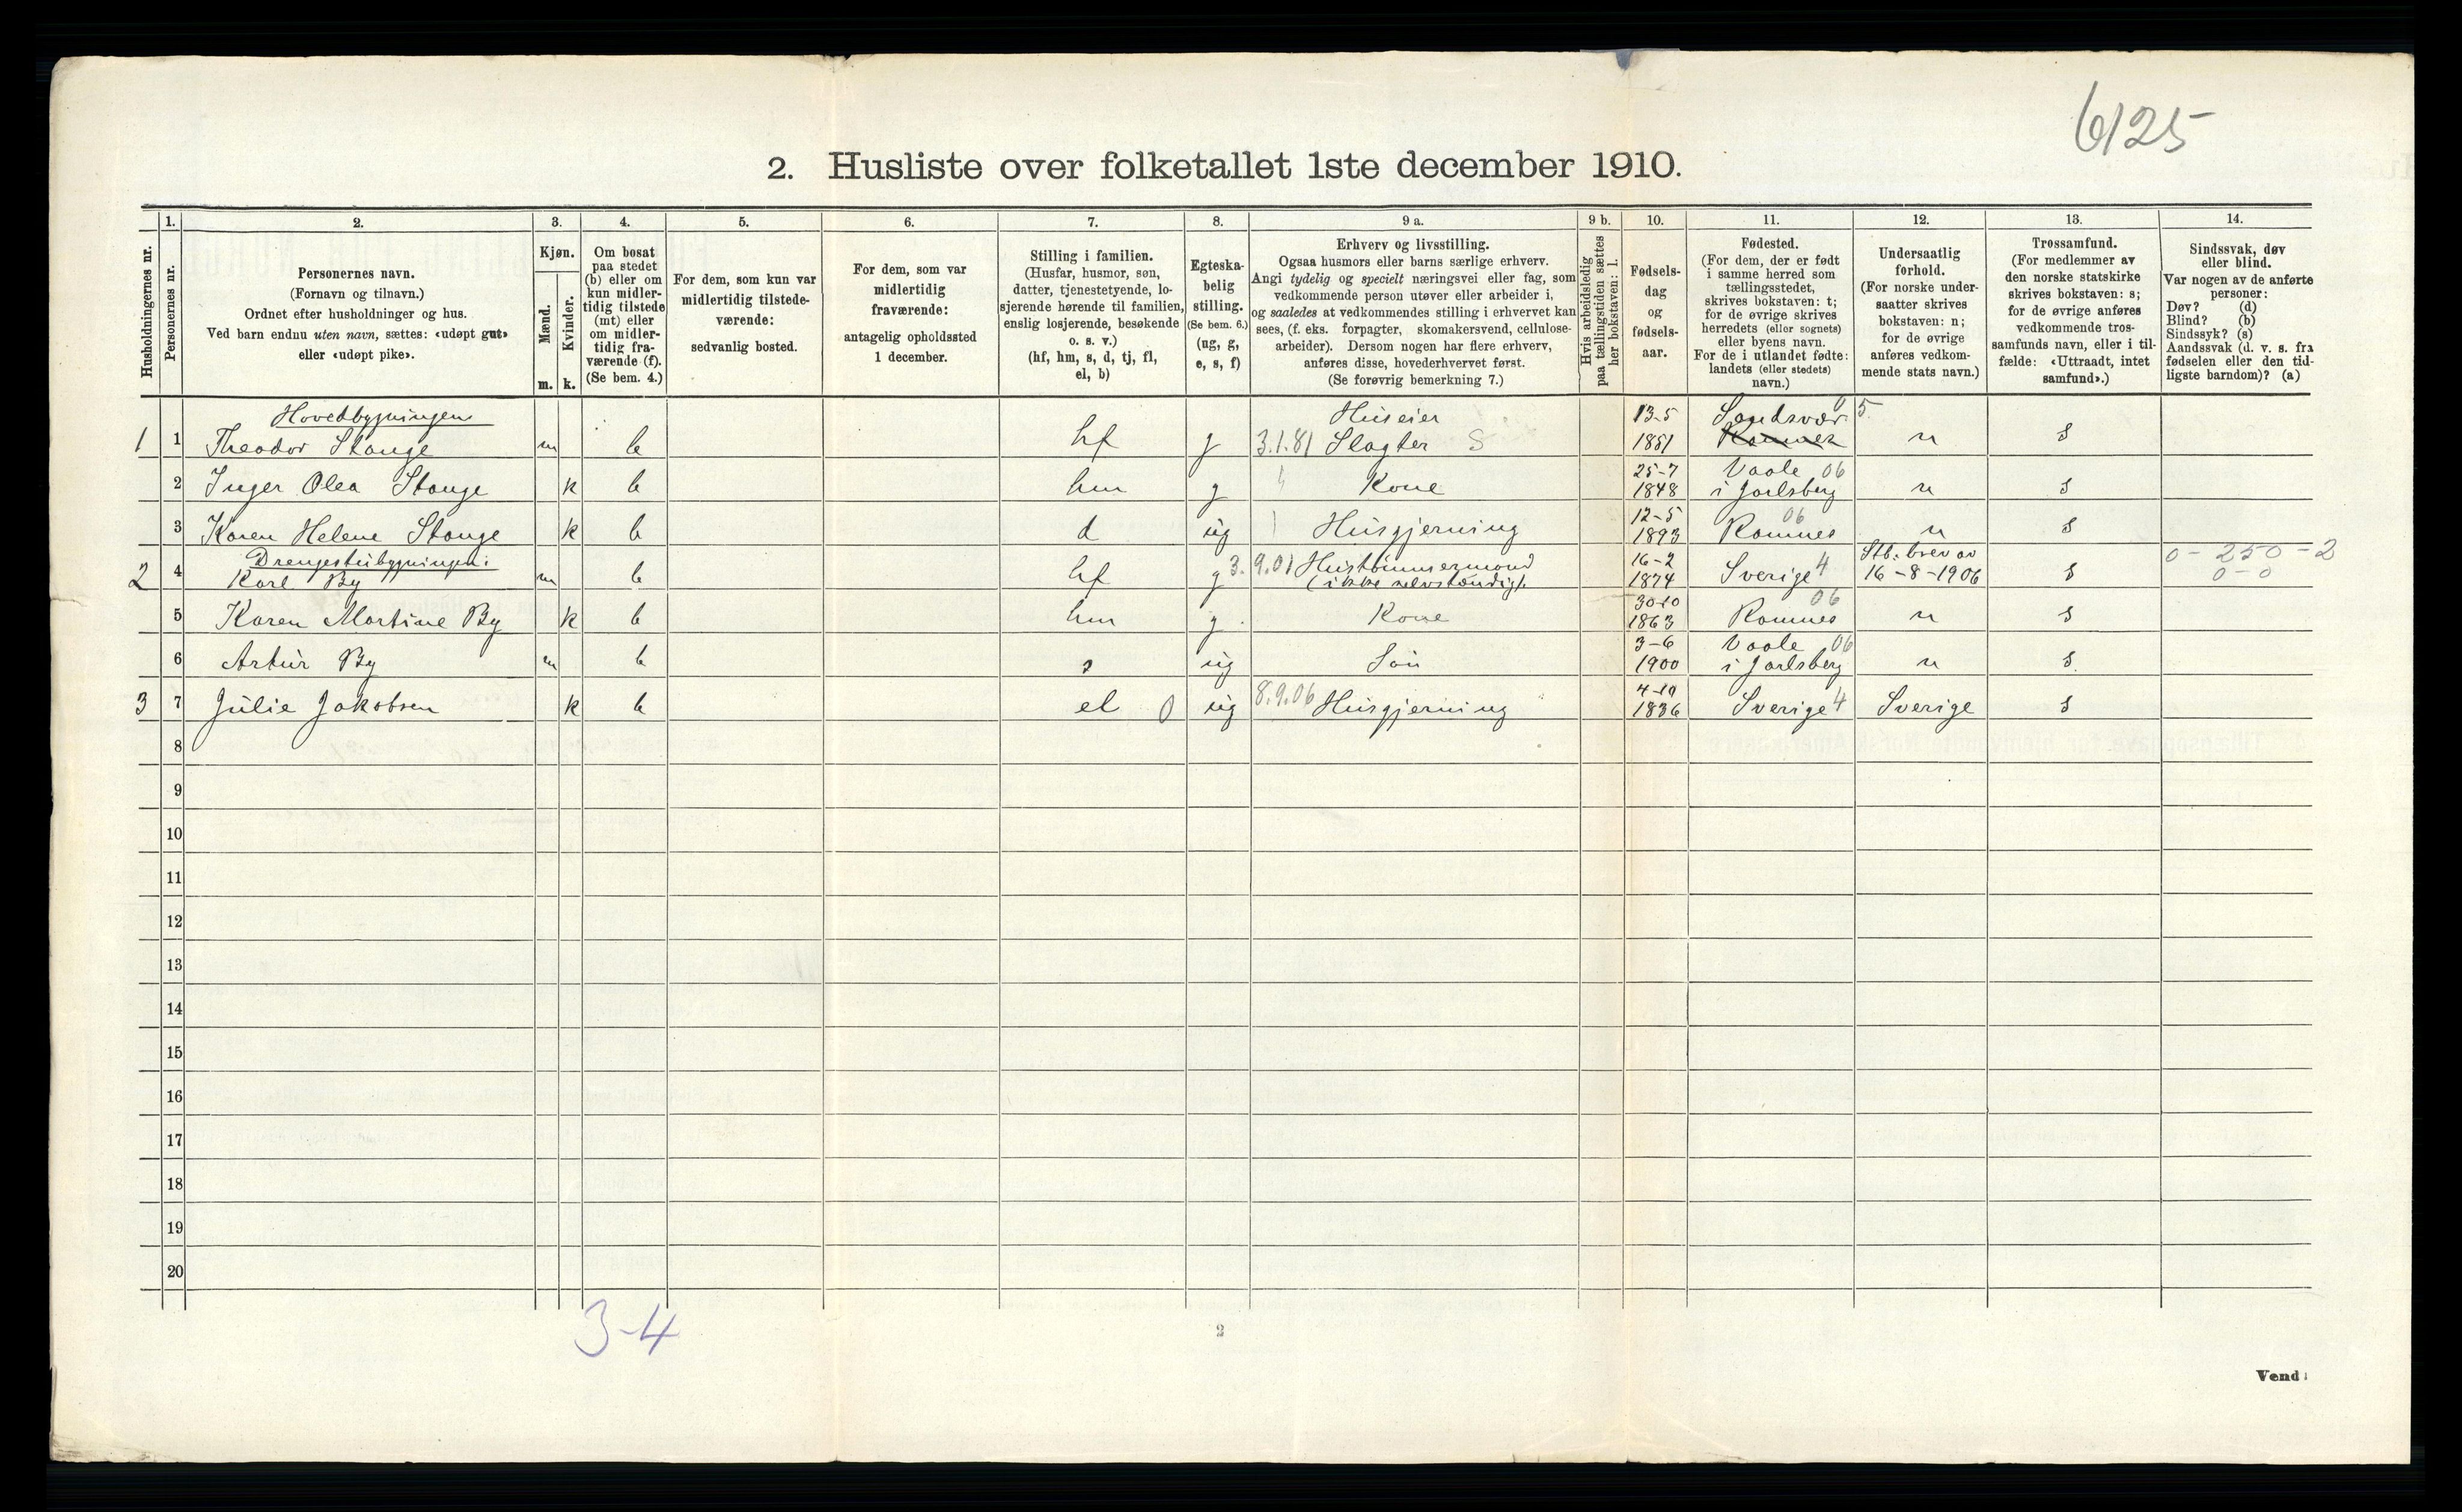 6125
2. Husliste over folketallet 1ste december 1910.
Husholdningernes nr.
1.
Personernes nr.
2.
Personernes navn.
(Fornavn og tilnavn.)
Ordnet efter husholdninger og hus.
Ved barn endnu uten navn, sættes: «udøpt gut»
eller «udøpt pike».
3.
Kjøn.
Mænd.
Kvinder.
m. k.
4.
Om bosat
paa stedet
(b) eller om
kun midler-
tidig tilstede
(mt) eller
om midler-
tidig fra-
værende (f).
(Se bem. 4.)
5.
For dem, som kun var
midlertidig tilstede-
værende:
sedvanlig bosted.
6.
For dem, som var
midlertidig
fraværende:
antagelig opholdssted
1 december.
7.
Stilling i familien.
(Husfar, husmor, søn,
datter, tjenestetyende, lo-
sjerende hørende til familien,
enslig losjerende, besøkende
o. s. v.)
(hf, hm, s, d, tj, fl,
el, b)
8.
Egteska-
belig
stilling.
(Se bem. 6.)
(ug, g,
e, s, f)
9 a.
Erhverv og livsstilling.
Ogsaa husmors eller barns særlige erhverv.
Angi tydelig og specielt næringsvei eller fag, som
vedkommende person utøver eller arbeider i,
og saaledes at vedkommendes stilling i erhvervet kan
sees, (f. eks. forpagter, skomakersvend, cellulose-
arbeider). Dersom nogen har flere erhverv,
anføres disse, hovederhvervet først.
(Se forøvrig bemerkning 7.)
9 b.
Hvis arbeidsledig
paa tællingstiden sættes
her bokstaven: l.
10.
Fødsels-
dag
og
fødsels-
aar.
11.
Fødested.
(For dem, der er født
i samme herred som
tællingsstedet,
skrives bokstaven: t;
for de øvrige skrives
herredets (eller sognets)
eller byens navn.
For de i utlandet fødte:
landets (eller stedets)
navn.)
12.
Undersaatlig
forhold.
(For norske under-
saatter skrives
bokstaven: n;
for de øvrige
anføres vedkom-
mende stats navn.)
13.
Trossamfund.
(For medlemmer av
den norske statskirke
skrives bokstaven: s;
for de øvrige anføres
vedkommende tros-
samfunds navn, eller i til-
fælde: «Uttraadt, intet
samfund».)
14.
Sindssvak, døv
eller blind.
Var nogen av de anførte
personer:
Døv? (d)
Blind? (b)
Sindssyk? (s)
Aandssvak (d. v. s. fra
fødselen eller den tid-
ligste barndom)? (a)
Hovedbygningen Huseier 13-5 Sandsvær
1 1 Theodor Stange m b hf g 3.1.81 Slagter S 1851 Romnes n s
25-7 Vaale 06
2 Inger Olea Stange k b hm g Kone 1848 i Jarlsberg n s
12-5 06
3 Karen Helene Stange k b d ug Husgjerning 1893 Romnes n s
Drengestubygningen: 3.9.01 Hustømmermand 16-2 Stb. brev av 0-250-2
2 4 Karl By m b hf g (ikke selvstændig). 1874 Sverige 4 16-8-1906 s 0-0
30-10 06
5 Karen Martine By k b hm g Kone 1863 Romnes n s
3-6 Vaale 06
6 Artur By m b s ug Søn 1900 i Jarlsberg n s
4-10
3 7 Julie Jakobsen k b el 0 ug 8.9.06 Husgjerning 1836 Sverige 4 Sverige s
8
9
10
11
12
13
14
15
16
17
18
19
20
3-4
2
Vend!